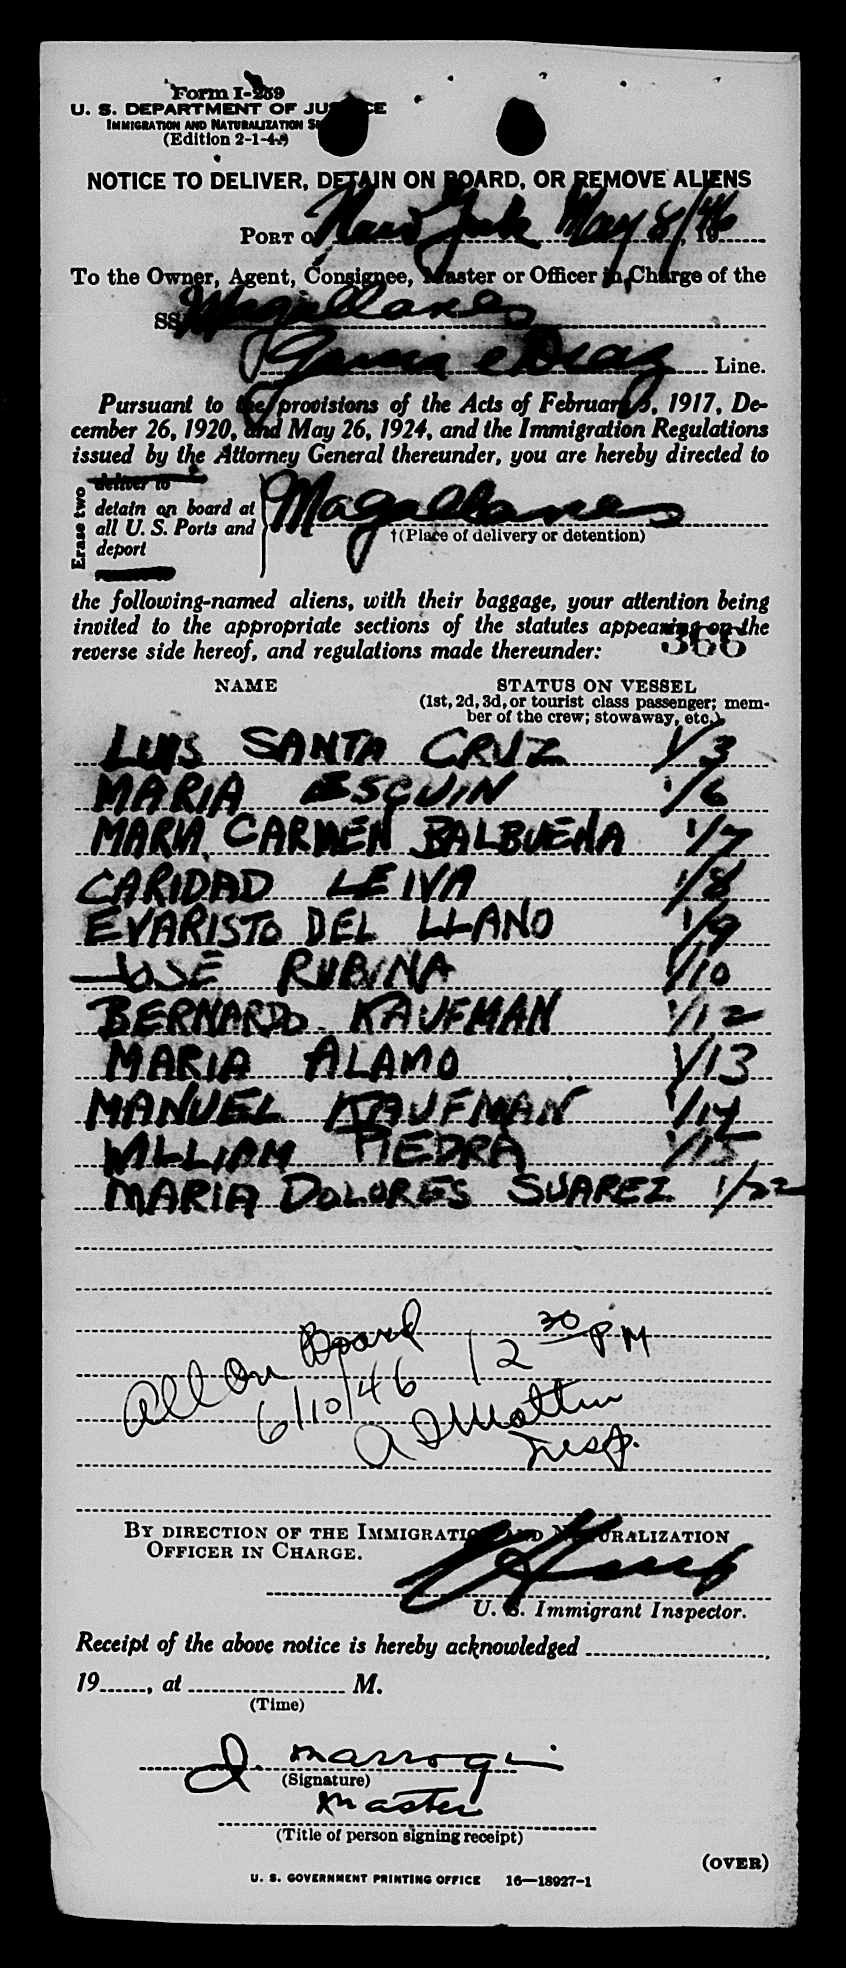 Form I-259
U. S. DEPARTMENT OF JUSTICE
IMMIGRATION AND NATURALIZATION
(Edition 2-1-4
NOTICE TO DELIVER, DETAIN ON BOARD, OR REMOVE ALIENS
PORT OF New York May 8/46, 19
To the Owner, Agent, Consignee, Master or Officer in Charge of the
SS Magallanes
Garcia e Diaz Line.
Pursuant to the provisions of the Acts of February 5, 1917, De-
cember 26, 1920, and May 26, 1924, and the Immigration Regulations
issued by the Attorney General thereunder, you are hereby directed to
Erase two
deliver to
detain on board at
all U. S. Ports and
deport
Magallanes
†(Place of delivery or detention)
the following-named aliens, with their baggage, your attention being
invited to the appropriate sections of the statutes appearing on the
reverse side hereof, and regulations made thereunder: 366
NAME STATUS ON VESSEL
(1st, 2d, 3d, or tourist class passenger; mem-
ber of the crew; stowaway, etc.)
LUIS SANTA CRUZ 1/3
MARIA ESQUIN 1/6
MARIA CARMEN BALBUENA 1/7
CARIDAD LEIVA 1/8
EVARISTO DEL LLANO 1/9
JOSE RUBINA 1/10
BERNARDO KAUFMAN 1/12
MARIA ALAMO 1/13
MANUEL KAUFMAN 1/14
WILLIAM PIEDRA 1/15
MARIA DOLORES SUAREZ 1/22
All on Board 12 30 PM
6/10/46
Insp.
BY DIRECTION OF THE IMMIGRATION AND NATURALIZATION
OFFICER IN CHARGE.
U. S. Immigrant Inspector.
Receipt of the above notice is hereby acknowledged
19, at M.
(Time)
(Signature)
Master
(Title of person signing receipt)
(OVER)
U. S. GOVERNMENT PRINTING OFFICE 16—18927-1